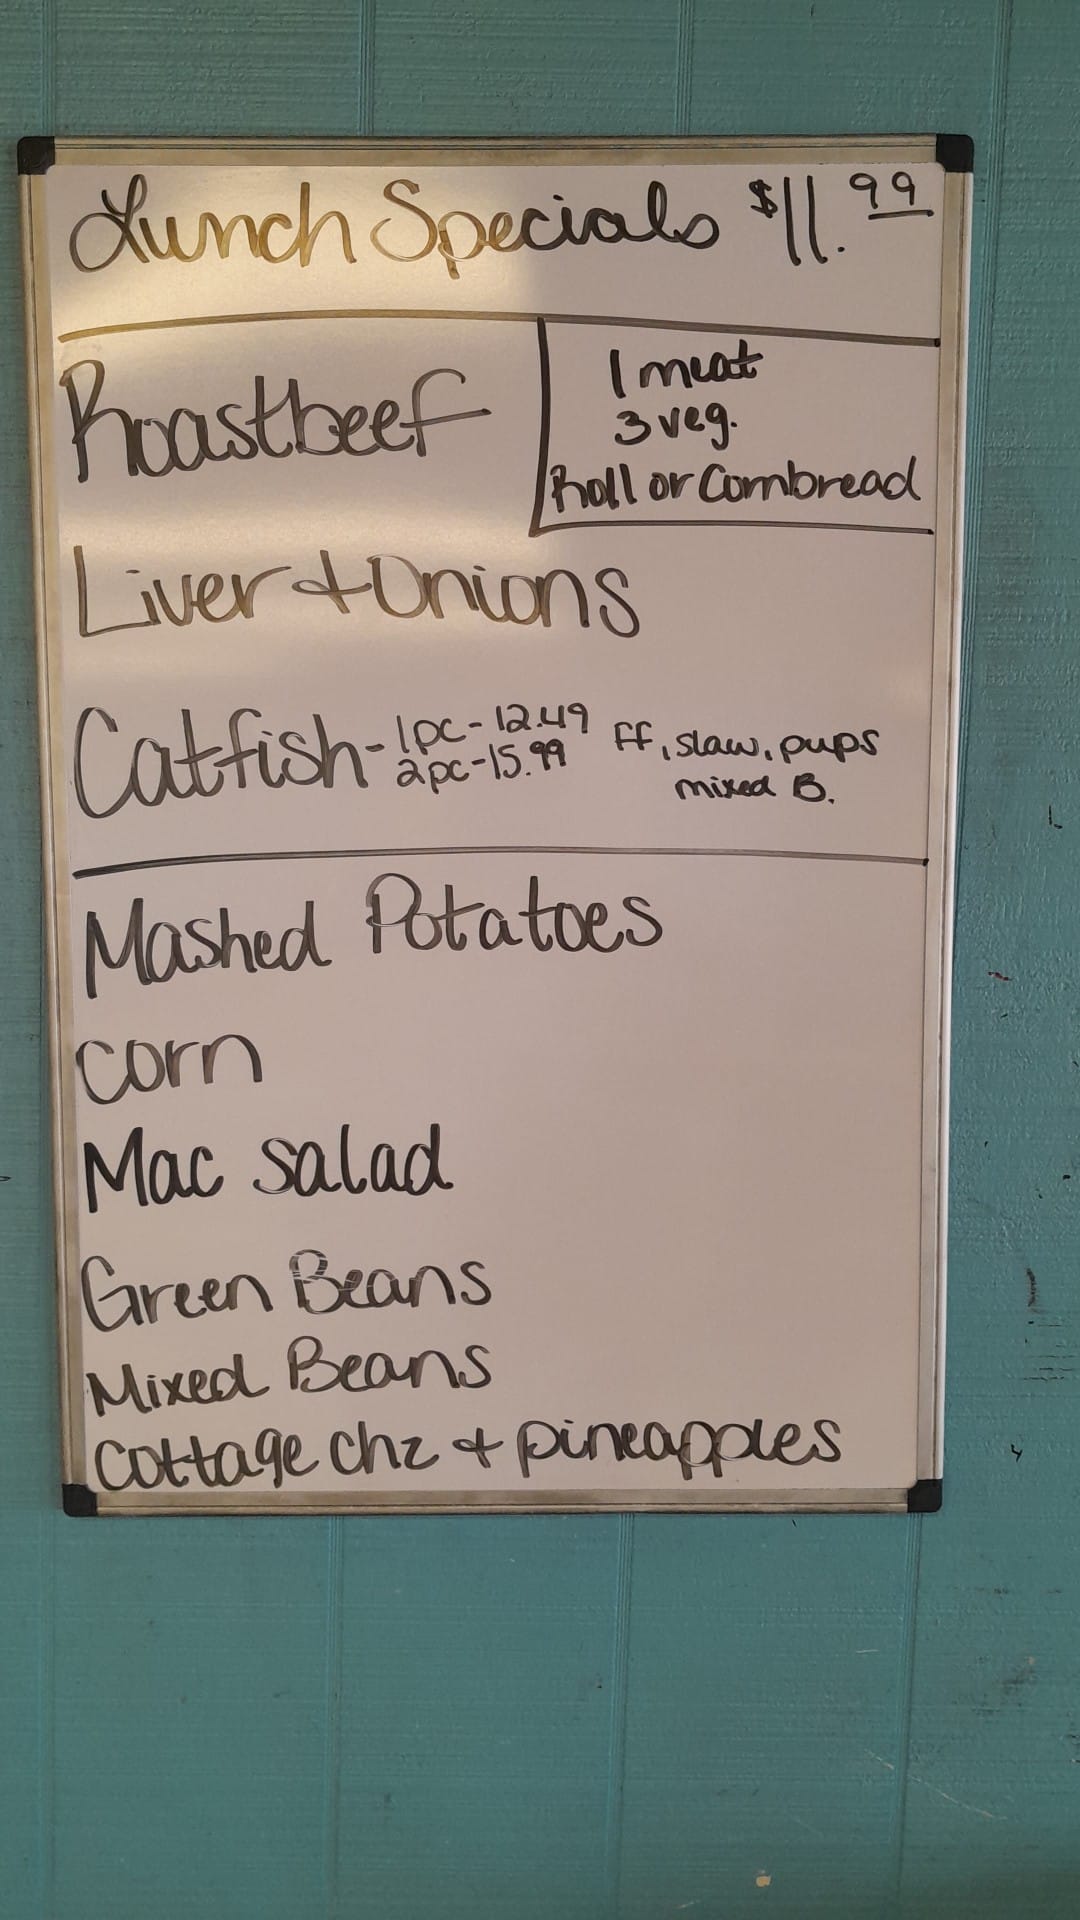 Lunch Specials $11.99
Roastbeef
1 meat
3 veg.
Roll or Cornbread
Liver + Onions
Catfish - 1pc - 12.49
2pc - 15.99
ff, slaw, pups
mixed B.
Mashed Potatoes
corn
Mac salad
Green Beans
Mixed Beans
Cottage chz + pineapples